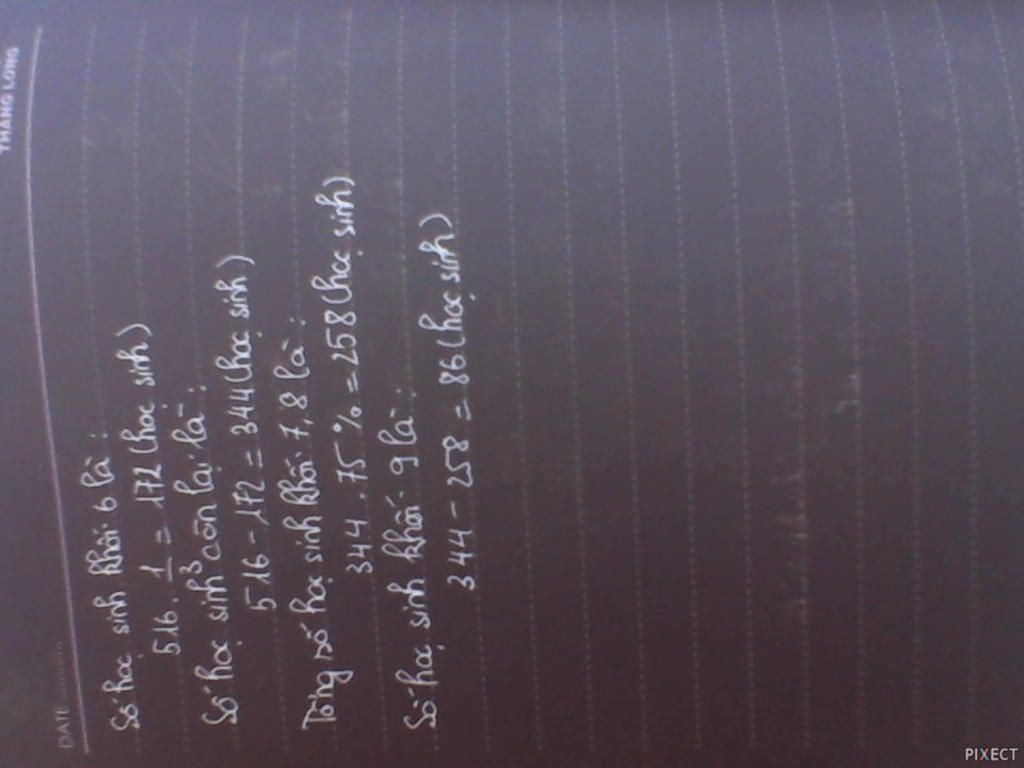 THANG LONG
DATE
Số học sinh khối 6 là:
516 . 1/3 = 172 (học sinh)
Số học sinh còn lại là:
516 - 172 = 344 (học sinh)
Tổng số học sinh khối 7, 8 là:
344 . 75 % = 258 (học sinh)
Số học sinh khối 9 là:
344 - 258 = 86 (học sinh)
PIXECT